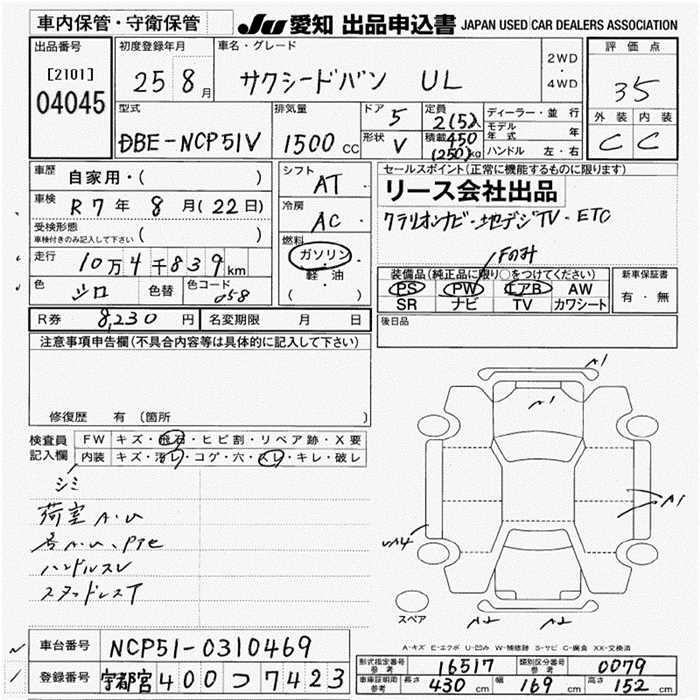 車内保管・守衛保管
JU 愛知 出品申込書 JAPAN USED CAR DEALERS ASSOCIATION
出品番号
[2101]
04045
初度登録年月
25 8 月
車名・グレード
サクシードバン UL
2WD
・
4WD
評価点
3.5
外装 内装
C C
型式
DBE-NCP51V
排気量
1500 CC
ドア
5
形状
V
定員
2(5)人
積載
450
(250)kg
ディーラー・並行
モデル年式 年
ハンドル 左・右
車歴
自家用・( )
車検
R7年 8月(22日)
受検形態
車検付きのみ記入して下さい
( )
走行
10万4千839km
色
シロ
色替
色コード
058
シフト
AT
冷房
AC
燃料
ガソリン
軽・油
( )
セールスポイント(正常に機能するものに限ります)
リース会社出品
クラリオンナビ・地デジTV・ETC
Fのみ
装備品(純正品に限り○をつけてください)
PS PW エアB AW
SR ナビ TV カワシート
新車保証書
有・無
R券 8,230 円
名変期限 月 日
後日品
注意事項申告欄(不具合内容等は具体的に記入して下さい)
修復歴 有(箇所 )
検査員
記入欄
FW キズ・飛石・ヒビ割・リペア跡・X要
内装 キズ・汚レ・コゲ・穴・スレ・キレ・破レ
シミ
荷室 A・U
ハンドルスレ
スタッドレスT
A1
A1
A1
A2
A2
スペア
A-キズ E-エクボ U-凹み W-補修跡 S-サビ C-腐食 XX-交換済
車台番号 NCP51-0310469
登録番号 宇都宮 400 つ 7423
形式指定番号
参考
16517
類別区分番号
参考
0079
車庫証明用
参考
長さ 430 cm 幅 169 cm 高さ 152 cm